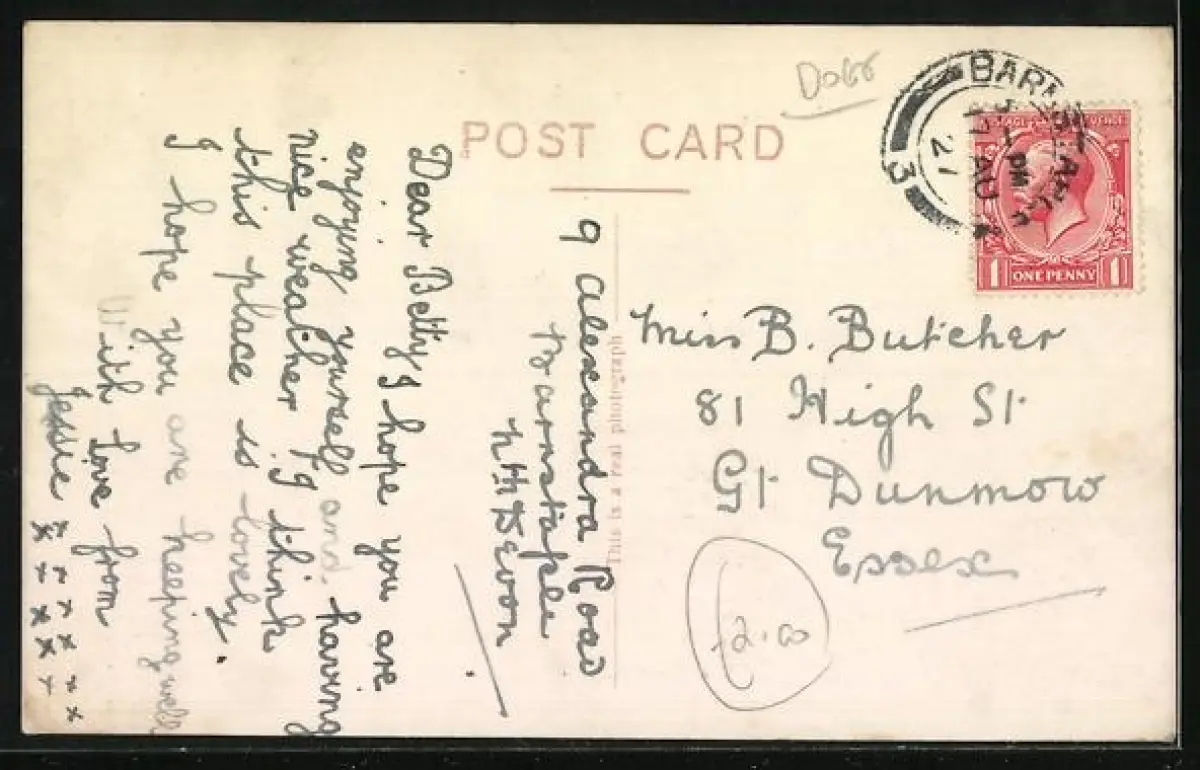 Dogs
POST CARD
BARNSTAPLE
PM
17 AU
27
3
POSTAGE REVENUE
1 ONE PENNY 1
9 Alexandra Road
Barnstaple
Nth Devon
Dear Betty, I hope you are
enjoying yourself and having
nice weather, I think
this place is lovely.
I hope you are keeping well
With love from
Jessie x x x x x
x x x x x x
This is a real photograph
Miss B. Butcher
81 High St
Gt Dunmow
Essex
£2.00